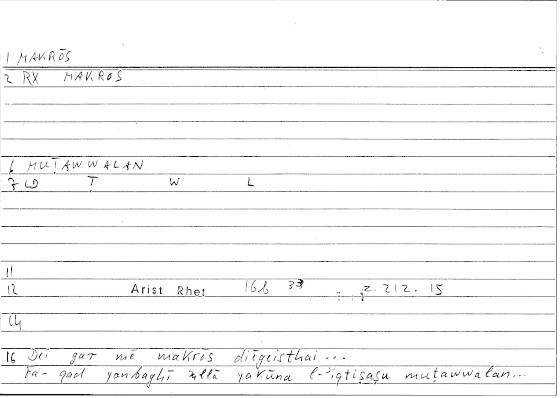 1 MAKRŌS
2 RX MAKROS
6 MUṬAWWALAN
7 LD Ṭ W L
11
12 Arist Rhet 16b 33 2.212.15
14
16 Dei gar mē makrōs diēgeisthai...
Fa-qad yanbaghī allā yakūna l-iqtiṣaṣu muṭawwalan...